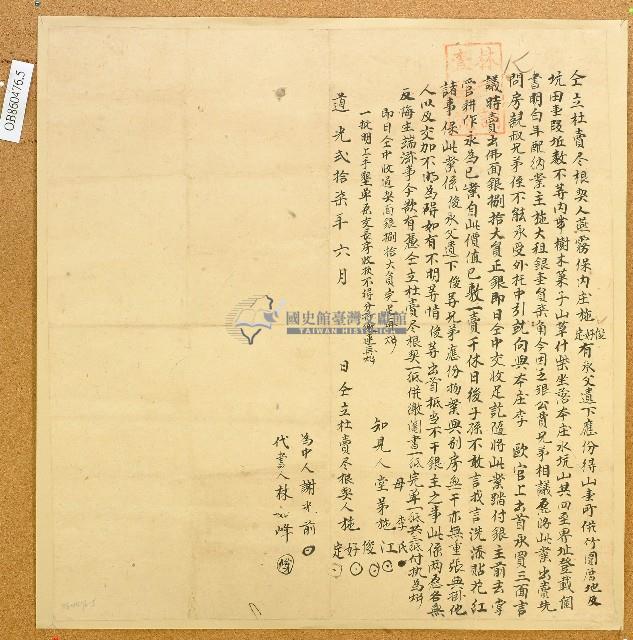 仝立杜賣尽根契人燕霧保內庄施俊好定有承父遺下應份得山壹所併竹圍厝地及
坑田壹段坵數不等內帶樹木菓子山草什柴坐落本庄水坑山其四至界址登載鬮
書明白年配納業主施大租銀
今因乏銀公費兄弟相議愿將此業出賣先
問房親叔兄弟侄不能承受外托中引就向與本庄李 歐官上出首承買三面言
議時賣出佛面銀捌拾大員正銀即日仝中收足訖隨將此業踏付銀主前去掌
管耕作永為己業自此價值已敷一賣千休日後子孫不敢言找言洗添貼花紅
諸事保此業係俊承父遺下俊等兄弟應份物業與別房無干亦無重張典掛他
人以及交加不明為碍如有不明等情俊等出首抵當不干銀主之事此係兩愿各無
反悔生端滋事今欲有憑仝立杜賣尽根契一紙併繳鬮書一紙完單一紙共三紙付執為炤
即日仝中收過契面銀捌拾大員完足再炤
一批明上手墾單系交長房收執不得分拆繳連再炤
道光弍拾柒年六月 日仝立杜賣尽根契人施俊好定
母李氏
知見人堂弟施江
為中人謝光前
代書人林如峰
OB860476.5
國史館臺灣文獻館
TAIWAN HISTORICA